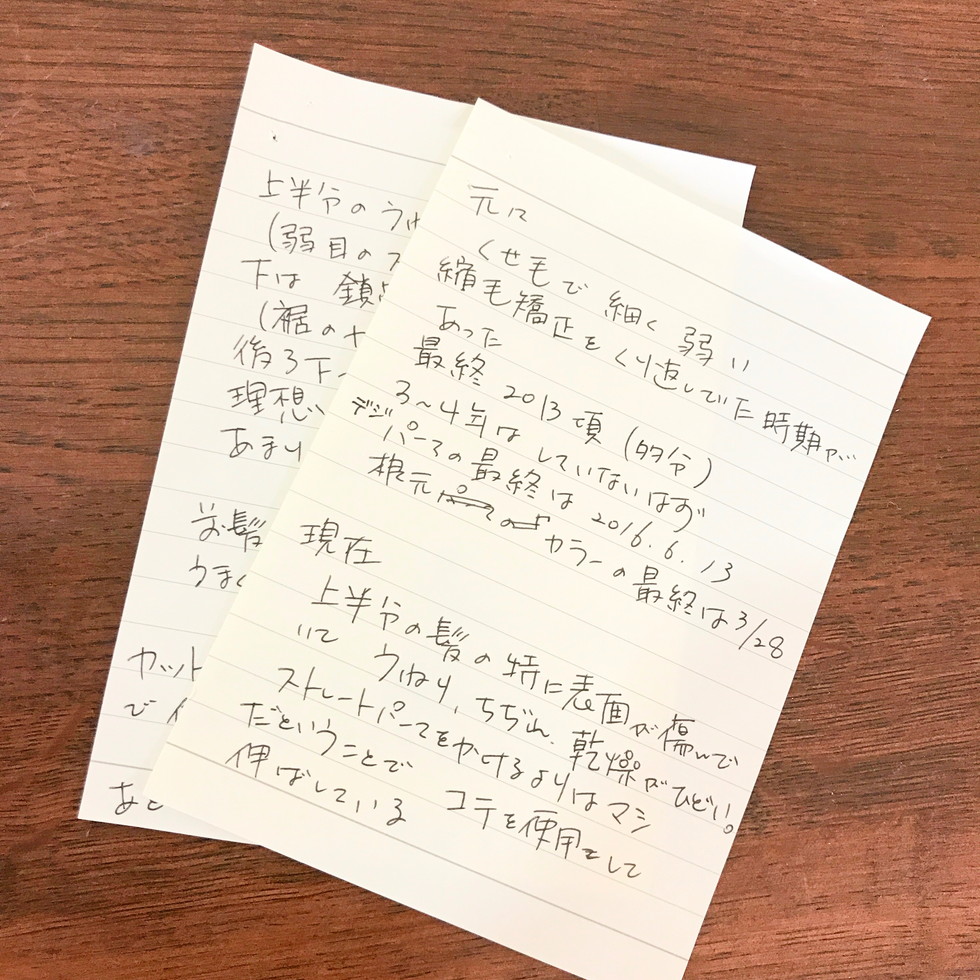 元に
くせ毛で 細く 弱い
縮毛矯正をくり返していた時期が
あった
最終 2013頃(多分)
3〜4年はしていないはず
デジパーマの最終は 2016.6.13
根元 カラーの最終は3/28
現在
上半分の髪の特に表面が傷んで
いて うねり、ちぢれ、乾燥がひどい。
ストレートパーマをかけるよりはマシ
だということで コテを使用をして
伸ばしている
上半分のうね
(弱目のス
下は 鎖
(裾のヤ
後ろ下
理想
あまり
髪
うまく
カット
で
あと